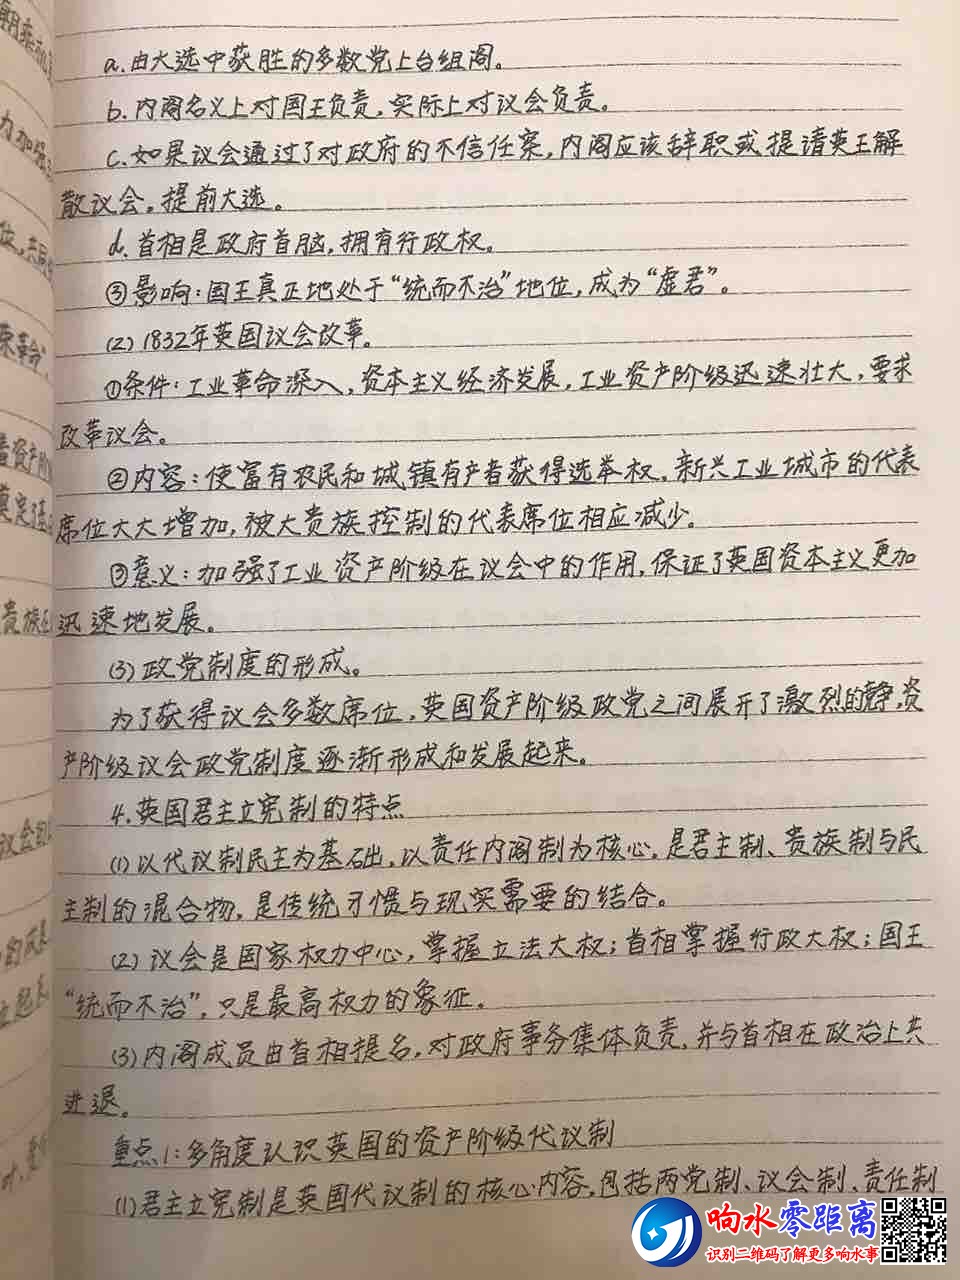 a.由大选中获胜的多数党上台组阁。
b.内阁名义上对国王负责,实际上对议会负责。
c.如果议会通过了对政府的不信任案,内阁应该辞职或提请英王解
散议会。提前大选。
d.首相是政府首脑,拥有行政权。
③影响:国王真正地处于“统而不治”地位,成为“虚君”。
(2)1832年英国议会改革。
①条件:工业革命深入,资本主义经济发展,工业资产阶级迅速壮大,要求
改革议会。
②内容:使富有农民和城镇有产者获得选举权,新兴工业城市的代表
席位大大增加,被大贵族控制的代表席位相应减少。
③意义:加强了工业资产阶级在议会中的作用,保证了英国资本主义更加
迅速地发展。
(3)政党制度的形成。
为了获得议会多数席位,英国资产阶级政党之间展开了激烈的竞争,资
产阶级议会政党制度逐渐形成和发展起来。
4.英国君主立宪制的特点
(1)以代议制民主为基础,以责任内阁制为核心,是君主制、贵族制与民
主制的混合物,是传统习惯与现实需要的结合。
(2)议会是国家权力中心,掌握立法大权;首相掌握行政大权;国王
“统而不治”,只是最高权力的象征。
(3)内阁成员由首相提名,对政府事务集体负责,并与首相在政治上共
进退。
重点1:多角度认识英国的资产阶级代议制
(1)君主立宪制是英国代议制的核心内容,包括两党制、议会制、责任制
响水零距离
识别二维码了解更多响水事